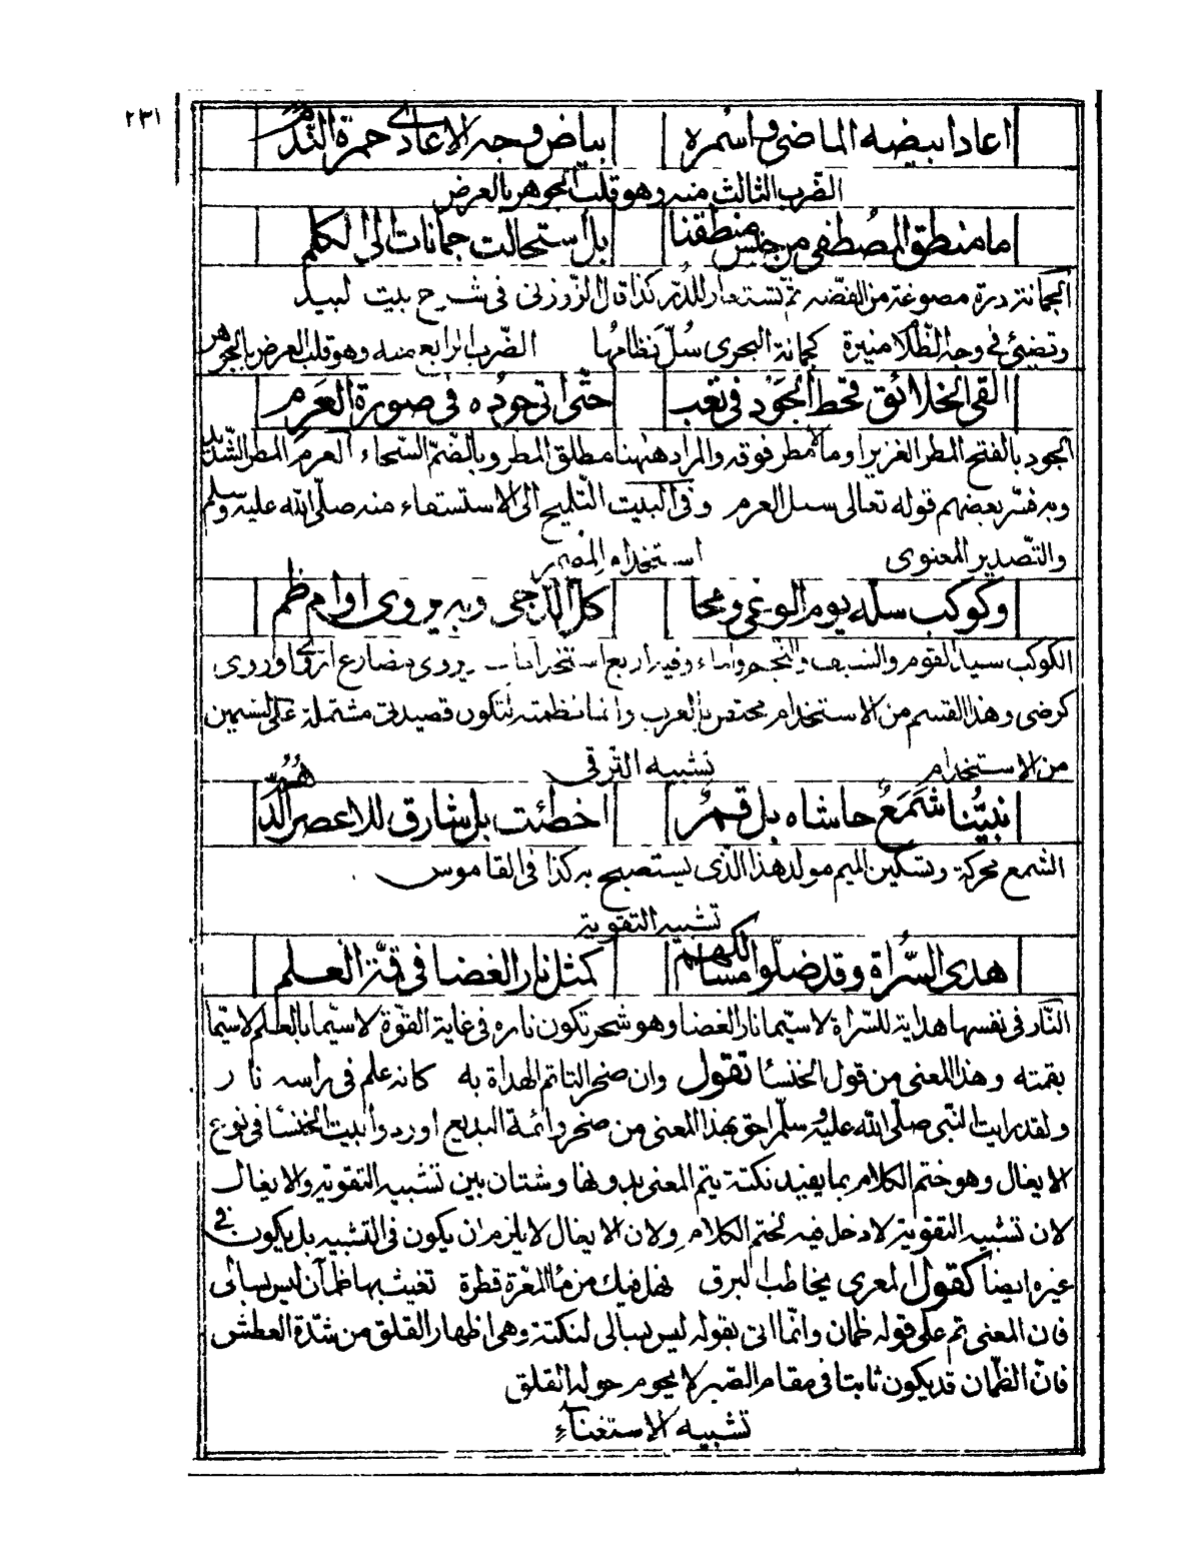 ٢٣١
اعاد ابيضه الماضى واسمره بياض وجه الاعادى حمرة الندم
الضرب الثالث منه وهو قلب الجوهر بالعرض
ما منطق المصطفى من جنس منطقنا بل استحالت جمانات الى الكلم
الجمانة درة مصوغة من الفضه ثم تستعار للدر كذا قال الزوزنى فى شرح بيت لبيد
وتضئ فى وجه الظلام منيرة كجمانة البحرى سُلّ نظامُها الضرب الرابع منه وهو قلب العرض بالجوهر
القى الخلائق قحط الجَود فى تعب حتّى اتى جُوده فى صورة العَرِم
الجود بالفتح المطر الغزير او ما لا مطر فوقه والمراد ههنا مطلق المطر وبالضّم السّخاء العرم المطر الشّديد
وبه فسّر بعضهم قوله تعالى سيل العرم وفى البيت التلميح الى الاستسقاء منه صلّى الله عليه وسلم
والتّصدير المعنوى استخدام المضمر
وكوكب سلّه يوم الوغى ومحا كل الدجى وبه يروى اوام ظم
الكوكب سيد القوم والسيف والنّجم والماء وفيه اربع استخدامات يروى مضارع اروى او روى
كرضى وهذا القسم من الاستخدام مختص بالعرب وانما نظمته لتكون قصيدتى مشتملة على القسمين
من الاستخدام تشبيه الترقى
نبيُّنا شَمَعٌ حاشاه بل قمرٌ اخطئت بل شارق للاعصر الدُّهُم
الشمع محركة وتسكين الميم مولد هذا الذى يستصبح به كذا فى القاموس
تشبيه التقوية
هدى السُّراة وقد ضلّوا مسالكهم كمثل نار الغضا فى قنّة العلم
النّار فى نفسها هداية للسّراة لا سيّما نار الغضا وهو شجر تكون ناره فى غاية القوّة لا سيّما بالعلم لا سيّما
بقمته وهذا المعنى من قول الخنسا تقول وان صخر التاتم الهداة به كانه علم فى راسه نار
ولقد رايت النّبى صلّى الله عليه وسلّم احق بهذا المعنى من صخر وائمة البديع اوردوا بيت الخنسا فى نوع
الايغال وهو ختم الكلام بما يفيد نكتة يتم المعنى بدونها وشتان بين تشبيه التقوية والايغال
لان تشبيه التقوية لا دخل فيه لختم الكلام ولان الايغال لا يلزم ان يكون فى التشبيه بل يكون فى
غيره ايضا كقول المعرى يخاطب البرق فهل فيك من ماء المعرّة قطرة تغيث بها ظمآن ليس بسالى
فان المعنى تم على قوله ظمان وانّما اتى بقوله ليس بسالى لنكتة وهى اظهار القلق من شدّة العطش
فانّ الظمّان قد يكون ثابتا فى مقام الصّبر لا يحوم حوله القلق
تشبيه الاستغناء